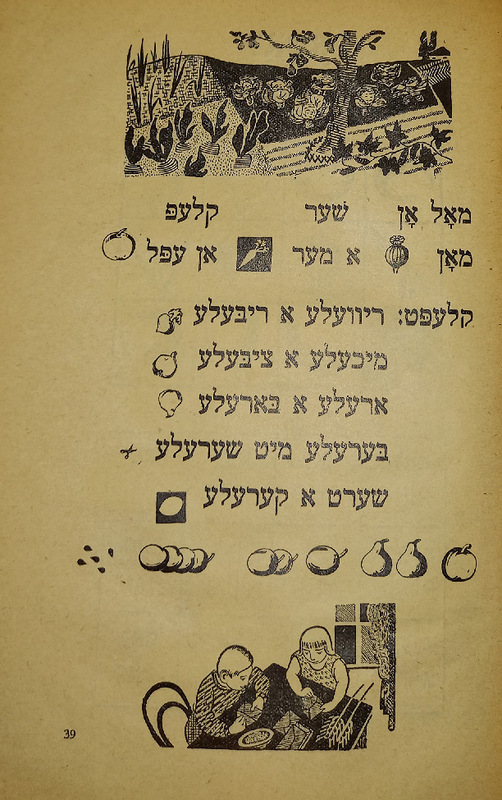 מאָל אָן שער קלעפּ
מאָן א מער אן עפּל
קלעפּט: ריוועלע א ריבעלע
מיכעלע א ציבעלע
ארעלע א בארעלע
בערעלע מיט שערעלע
שערט א קערעלע
39